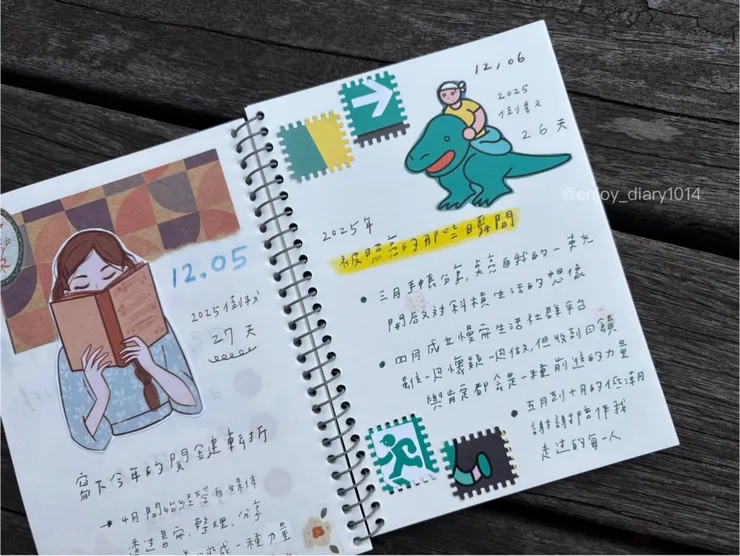 12.05
2025倒數
27天
寫下今年的關鍵轉折
→4月開始經營自媒體
透過書寫、整理、分享
一種力量
12.06
2025
倒數
26天
@enjoy_diary1014
2025年
被照亮的那些瞬間
• 三月手帳分享,莫忘自我的一束光
開啟對斜槓生活的想像
• 四月成立慢寫生活社群平台
雖一邊懷疑一邊做,但收到回饋
與肯定都會是一種前進的力量
• 五月到十月的低潮期
謝謝陪伴我
走過的每一人